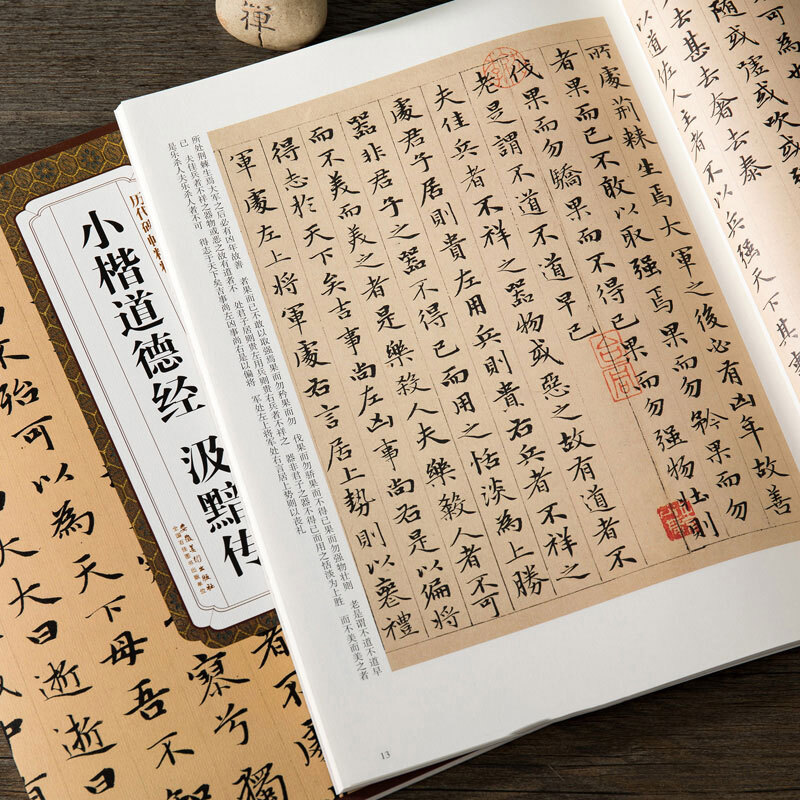 禅
可為也
随或嘘或吹或
去甚去奢去泰
以道佐人主者不以兵强天下其事
所處荊棘生焉大軍之後必有凶年故善
者果而已不敢以取强焉果而勿矜果而勿
伐果而勿驕果而不得已果而勿强物壯則
老是謂不道不道早已
夫佳兵者不祥之器物或惡之故有道者不
處君子居則貴左用兵則貴右兵者不祥之
器非君子之器不得已而用之恬淡為上勝
而不美而美之者是樂殺人夫樂殺人者不可
得志於天下矣吉事尚左凶事尚右是以偏將
軍處左上將軍處右言居上勢則以喪禮
所处荆棘生焉大军之后必有凶年故善 者果而已不敢以取强焉果而勿矜果而勿 伐果而勿骄果而不得已果而勿强物壮则 老是谓不道不道早
已 夫佳兵者不祥之器物或恶之故有道者不 处君子居则贵左用兵则贵右兵者不祥之 器非君子之器不得已而用之恬淡为上胜 而不美而美之者
是乐杀人夫乐杀人者不可 得志于天下矣吉事尚左凶事尚右是以偏将 军处左上将军处右言居上势则以丧礼
13
历代碑帖精粹
小楷道德经 汲黯传
安徽美术出版社
全国百佳图书出版单位
寥兮獨
不殆可以為天下母吾不
大大曰逝逝曰